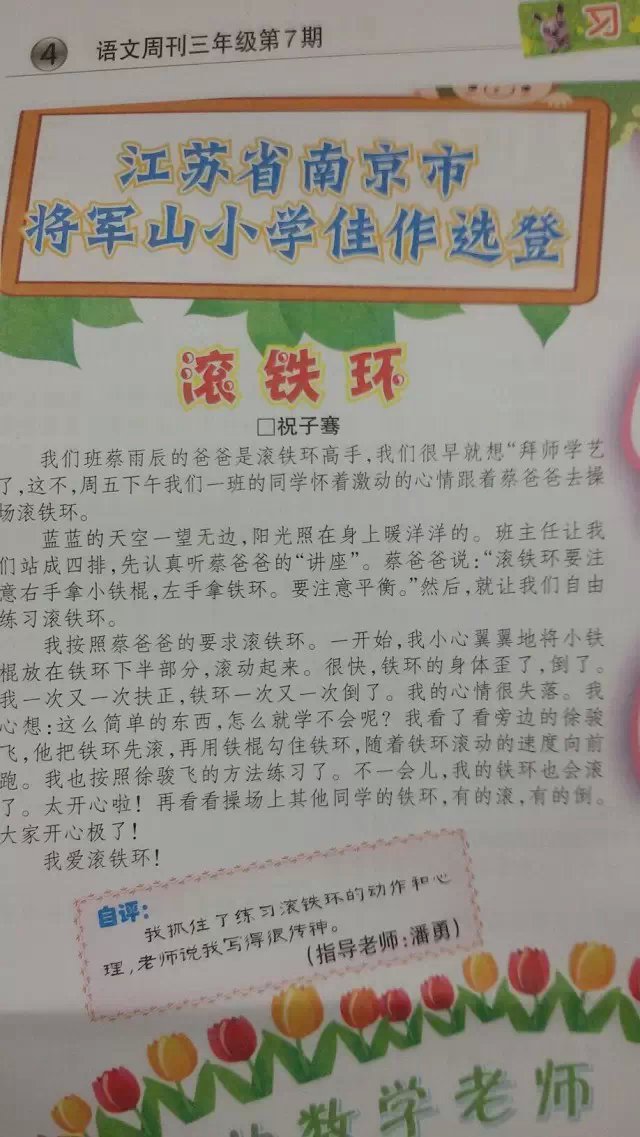 4 语文周刊三年级第7期
习
江苏省南京市
将军山小学佳作选登
滚铁环
□祝子骞
我们班蔡雨辰的爸爸是滚铁环高手,我们很早就想“拜师学艺
了,这不,周五下午我们一班的同学怀着激动的心情跟着蔡爸爸去操
场滚铁环。
蓝蓝的天空一望无边,阳光照在身上暖洋洋的。班主任让我
们站成四排,先认真听蔡爸爸的“讲座”。蔡爸爸说:“滚铁环要注
意右手拿小铁棍,左手拿铁环。要注意平衡。”然后,就让我们自由
练习滚铁环。
我按照蔡爸爸的要求滚铁环。一开始,我小心翼翼地将小铁
棍放在铁环下半部分,滚动起来。很快,铁环的身体歪了,倒了。
我一次又一次扶正,铁环一次又一次倒了。我的心情很失落。我
心想:这么简单的东西,怎么就学不会呢?我看了看旁边的徐骏
飞,他把铁环先滚,再用铁棍勾住铁环,随着铁环滚动的速度向前
跑。我也按照徐骏飞的方法练习了。不一会儿,我的铁环也会滚
了。太开心啦!再看看操场上其他同学的铁环,有的滚,有的倒。
大家开心极了!
我爱滚铁环!
自评:
我抓住了练习滚铁环的动作和心
理,老师说我写得很传神。
(指导老师:潘勇)
数学老师